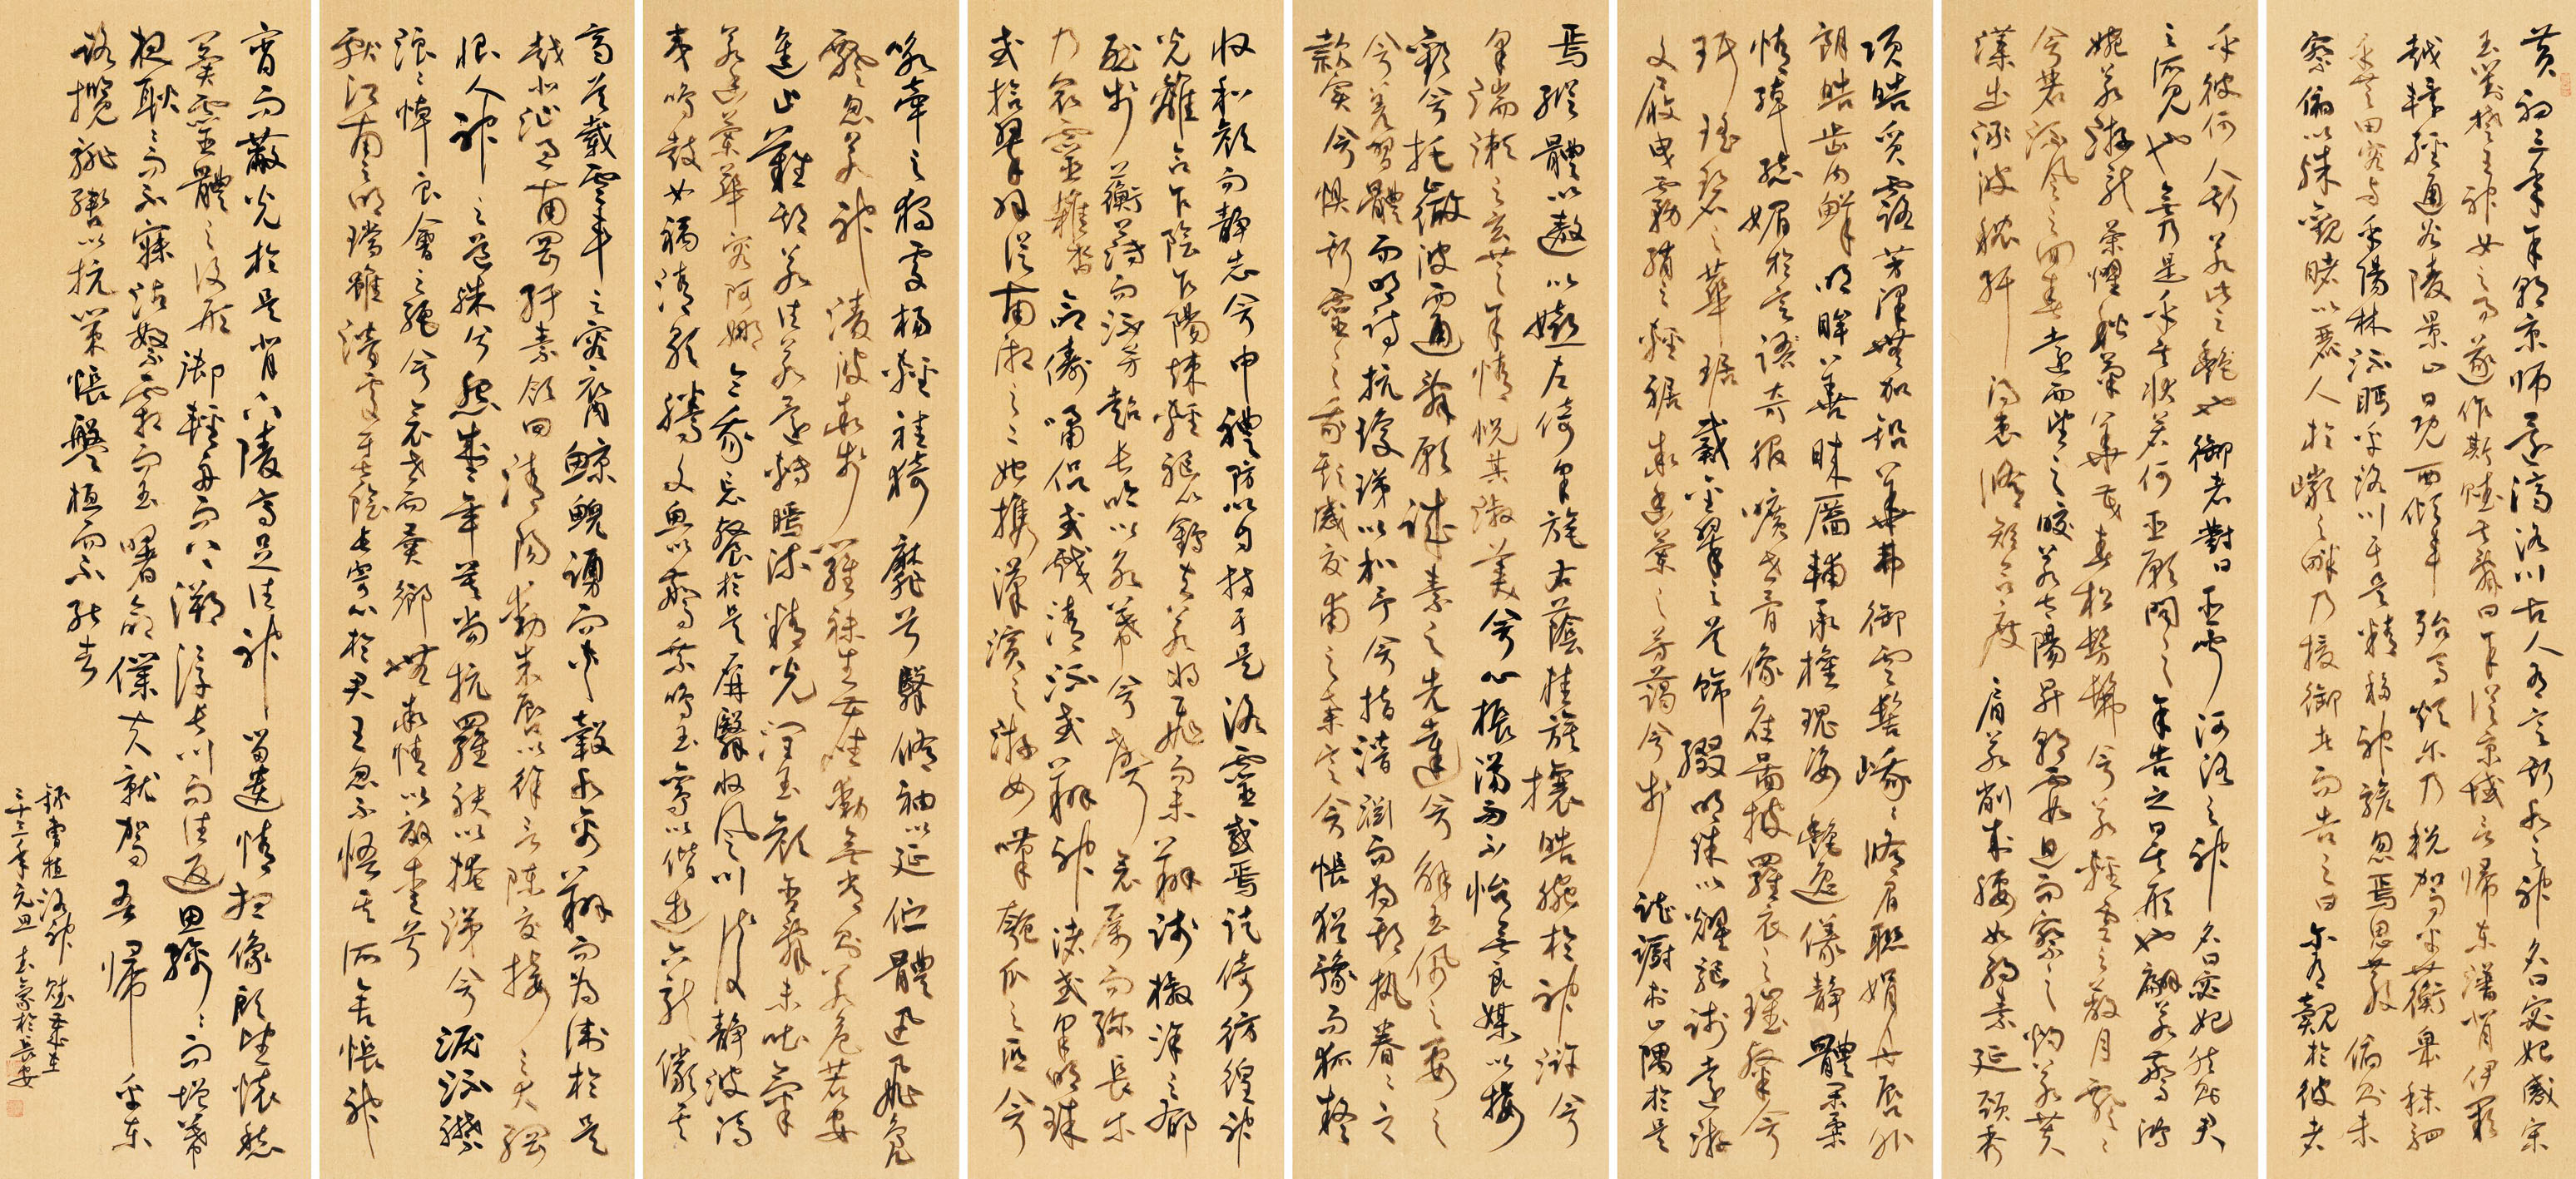 黃初三年余朝京師還濟洛川古人有言斯水之神名曰宓妃感宋
玉對楚王神女之事遂作斯賦其辭曰余從京域言歸東藩背伊闕
越轘轅經通谷陵景山日既西傾車殆馬煩爾乃稅駕乎蘅皋秣駟
乎芝田容與乎陽林流眄乎洛川于是精移神駭忽焉思散俯則未
察仰以殊觀睹一麗人於巖之畔乃援御者而告之曰爾有覿於彼者
乎彼何人斯若此之艷也御者對曰臣聞河洛之神名曰宓妃然則君
之所見也無乃是乎其狀若何臣願聞之余告之曰其形也翩若驚鴻
婉若游龍榮曜秋菊華茂春松髣髴兮若輕雲之蔽月飄飄
兮若流風之回雪遠而望之皎若太陽升朝霞迫而察之灼若芙
蕖出淥波穠纖得衷脩短合度肩若削成腰如約素延頸秀
項皓質呈露芳澤無加鉛華弗御雲髻峨峨脩眉聯娟丹唇外
朗皓齒內鮮明眸善睞靨輔承權瑰姿艷逸儀靜體閑柔
情綽態媚於言語奇服曠世骨像應圖披羅衣之璀粲兮
珥瑤碧之華琚戴金翠之首飾綴明珠以耀軀踐遠游
文履曳霧綃之輕裾微幽蘭之芳藹兮步踟躕於山隅於是
焉縱體以遨以嬉左倚采旄右蔭桂旗攘皓腕於神滸兮
采湍瀨之玄芝余情悅其淑美兮心振蕩而不怡無良媒以接
歡兮托微波而通辭願誠素之先達兮解玉佩之要之
兮羌習禮而明詩抗瓊珶以和予兮指潛淵而為期執眷眷之
款實兮懼斯靈之我欺感交甫之棄言兮悵猶豫而狐疑
收和顏而靜志兮申禮防以自持于是洛靈感焉徙倚彷徨神
光離合乍陰乍陽竦輕軀以鶴立若將飛而未翔踐椒塗之郁
烈步蘅薄而流芳超長吟以永慕兮聲哀厲而彌長爾
乃眾靈雜沓命儔嘯侶或戲清流或翔神渚或采明珠
或拾翠羽從南湘之二妃攜漢濱之游女嘆匏瓜之無匹兮
詠牽牛之獨處揚輕袿之猗靡兮翳脩袖以延佇體迅飛鳧
飄忽若神凌波微步羅襪生塵動無常則若危若安
進止難期若往若還轉眄流精光潤玉顏含辭未吐氣
若幽蘭華容婀娜令我忘餐於是屏翳收風川后靜波馮
夷鳴鼓女媧清歌騰文魚以警乘鳴玉鸞以偕逝六龍儼其
齊首載雲車之容裔鯨鯢踴而夾轂水禽翔而為衛於是
越北沚過南岡紆素領回清陽動朱唇以徐言陳交接之大綱
恨人神之道殊兮怨盛年莫當抗羅袂以掩涕兮淚流襟
浪浪悼良會之永絕兮哀一逝而異鄉無微情以效愛兮
獻江南之明璫雖潛處於太陰長寄心於君王忽不悟其所舍悵神
宵而蔽光於是背下陵高足往神留遺情想像顧望懷愁
冀靈體之復形御輕舟而上溯浮長川而忘返思綿綿而增慕
夜耿耿而不寐沾繁霜而至曙命僕夫就駕吾歸乎東
路攬騑轡以抗策悵盤桓而不能去
錄曹植洛神賦歲在
三十三年元旦於長安